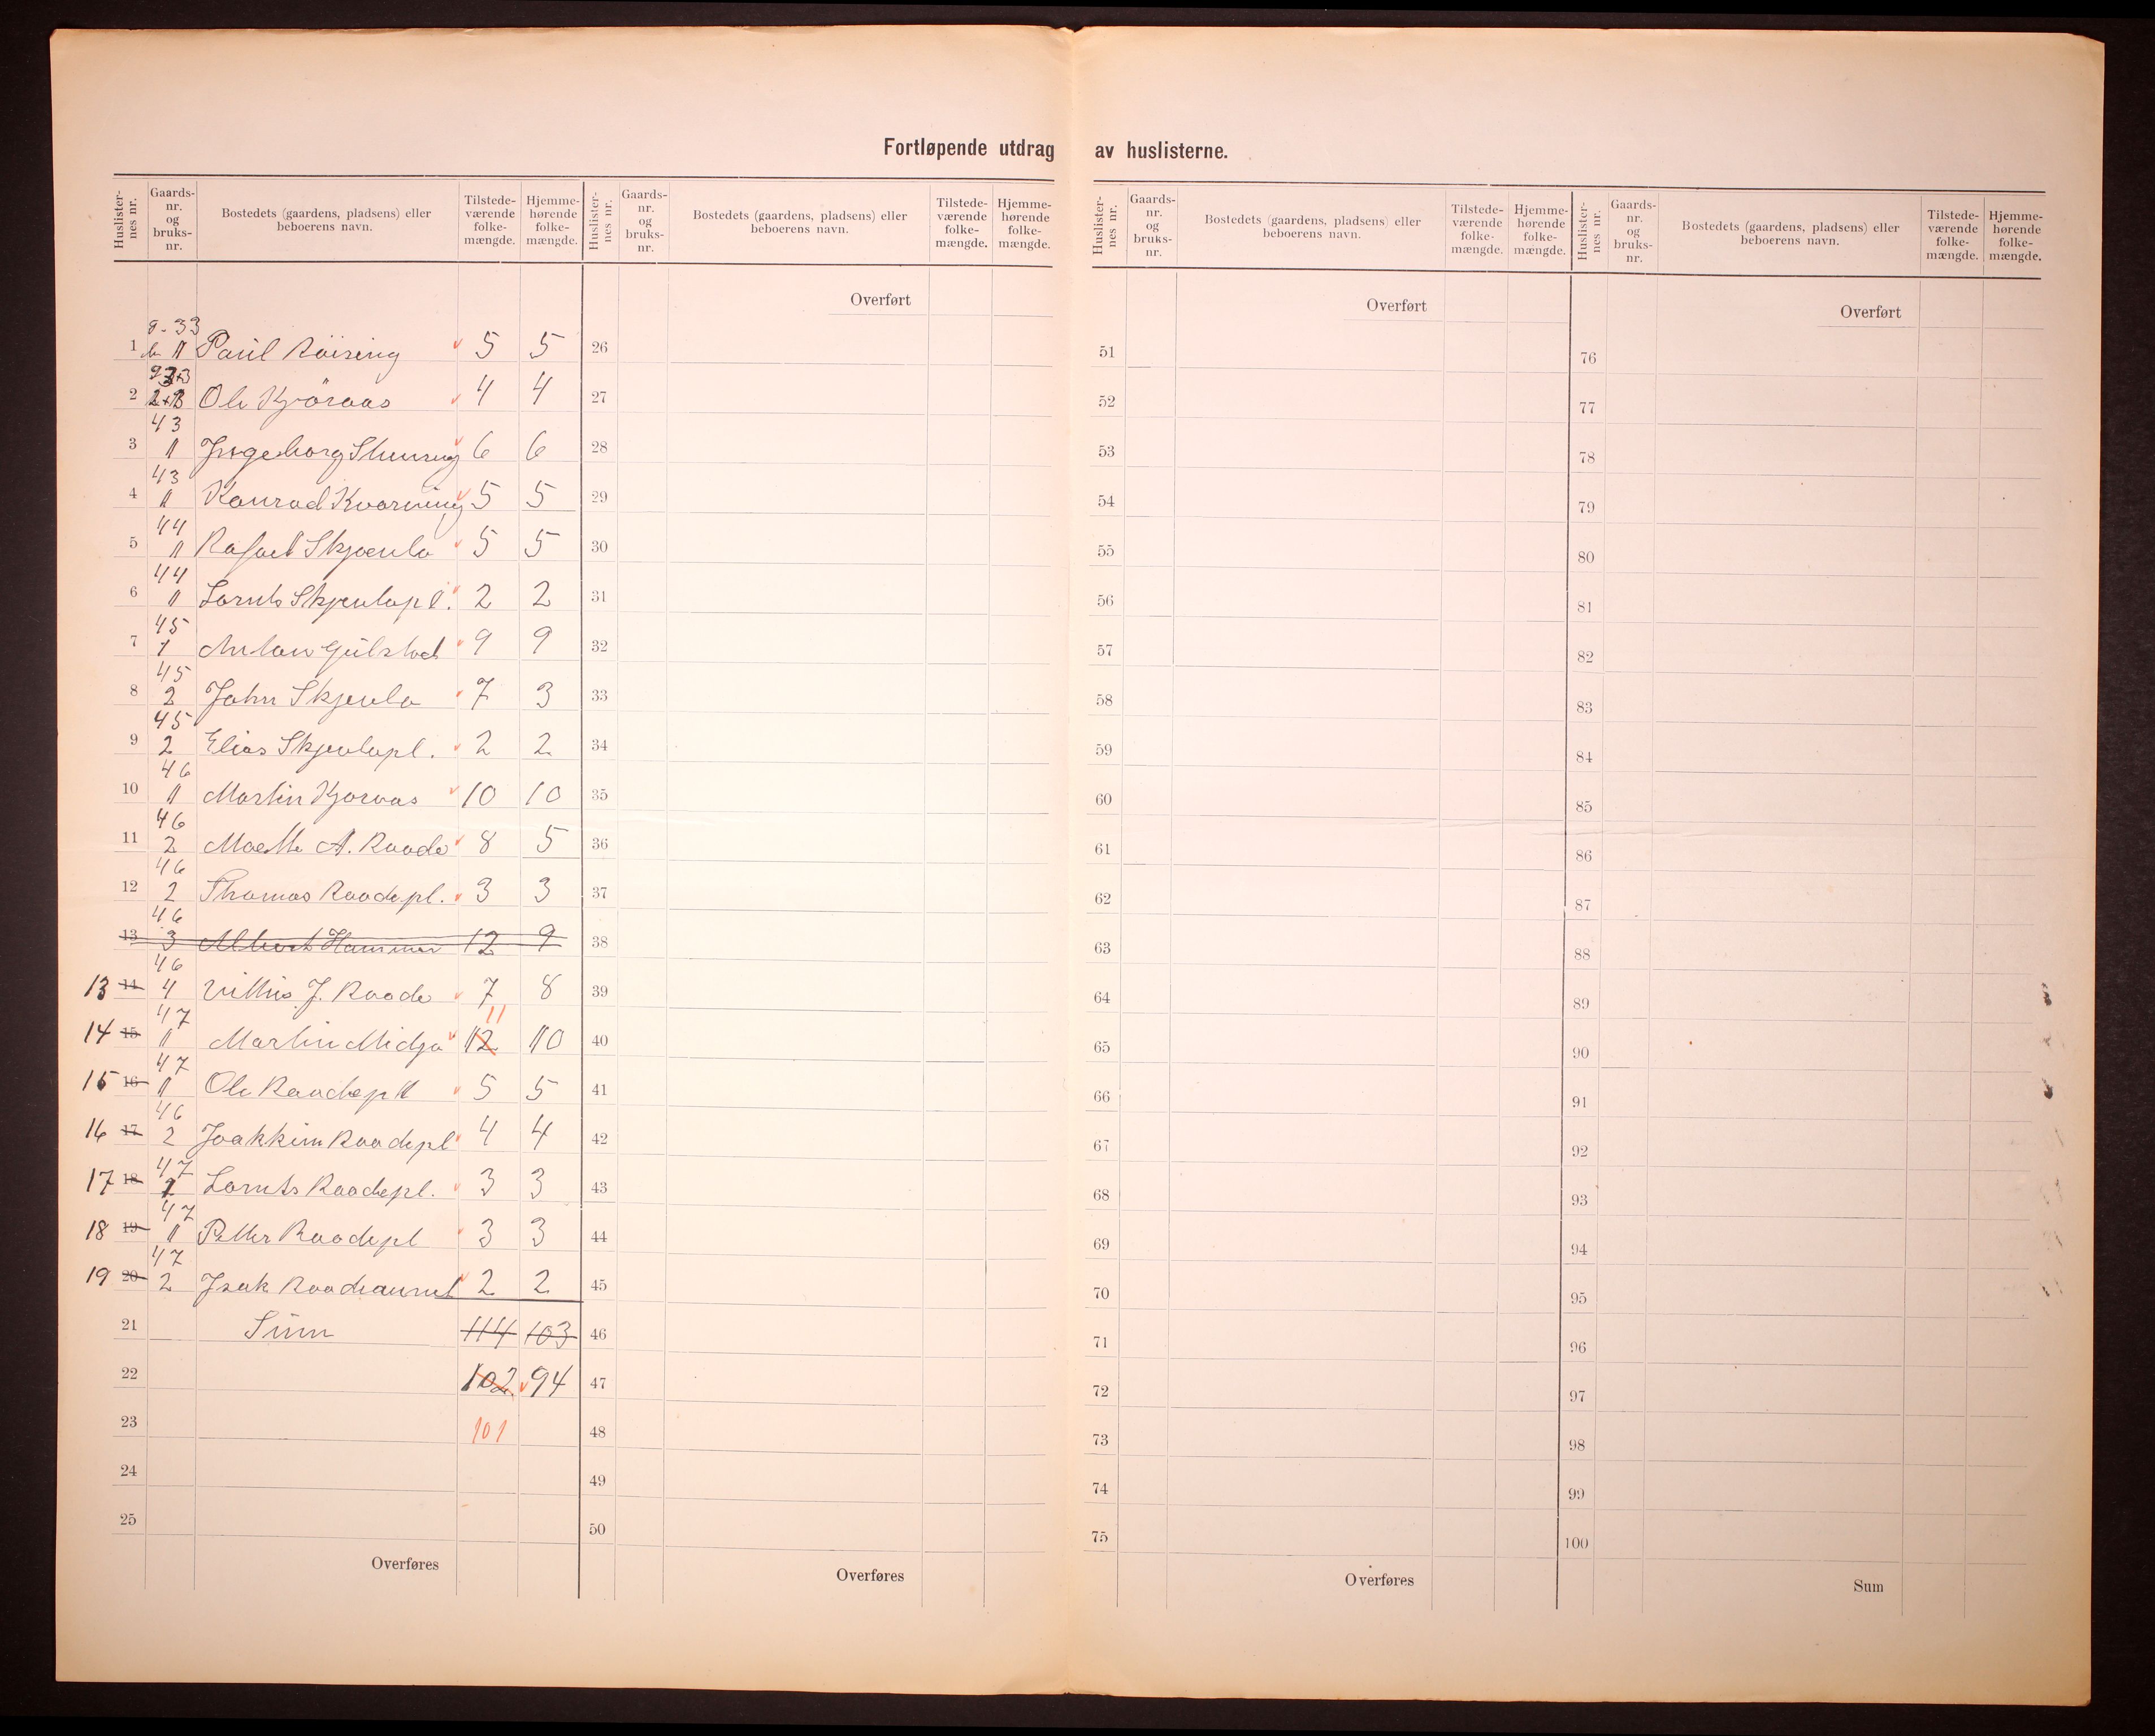 Fortløpende utdrag av huslisterne.
Huslister-nes nr. Gaards-nr. og bruks-nr. Bostedets (gaardens, pladsens) eller beboerens navn. Tilstede-værende folke-mængde. Hjemme-hørende folke-mængde.
Huslister-nes nr. Gaards-nr. og bruks-nr. Bostedets (gaardens, pladsens) eller beboerens navn. Tilstede-værende folke-mængde. Hjemme-hørende folke-mængde.
Huslister-nes nr. Gaards-nr. og bruks-nr. Bostedets (gaardens, pladsens) eller beboerens navn. Tilstede-værende folke-mængde. Hjemme-hørende folke-mængde.
Huslister-nes nr. Gaards-nr. og bruks-nr. Bostedets (gaardens, pladsens) eller beboerens navn. Tilstede-værende folke-mængde. Hjemme-hørende folke-mængde.
Overført Overført Overført
g. 33
1 b. 1 Paul Röising 5 5 26 51 76
2 Ole Kjöraas 4 4 27 52 77
43
3 1 Ingeborg 6 6 28 53 78
43
4 1 Konrad Kvarving 5 5 29 54 79
44
5 1 Rafael Skjenla 5 5 30 55 80
44
6 1 Lornts Skjenlapl. 2 2 31 56 81
45
7 1 Anton Gulstad 9 9 32 57 82
45
8 2 John Skjenla 7 3 33 58 83
45
9 2 Elias Skjenlapl. 2 2 34 59 84
46
10 1 Martin Kjoraas 10 10 35 60 85
46
11 2 A. Raade 8 5 36 61 86
46
12 2 Thomas Raadepl. 3 3 37 62 87
46
13 3 Albert Hammer 12 9 38 63 88
46
13 14 4 J. Raade 7 8 39 64 89
47 11
14 15 1 Martin Midjo 12 10 40 65 90
47
15 16 1 Ole Raadepl 5 5 41 66 91
46
16 17 2 Joakkim Raadepl 4 4 42 67 92
47
17 18 1 Lornts Raadepl. 3 3 43 68 93
47
18 19 1 Petter Raadepl 3 3 44 69 94
47
19 20 2 Isak 2 2 45 70 95
21 Sum 114 103 46 71 96
22 102 94 47 72 97
23 101 48 73 98
24 49 74 99
25 50 75 100
Overføres Overføres Overføres Sum